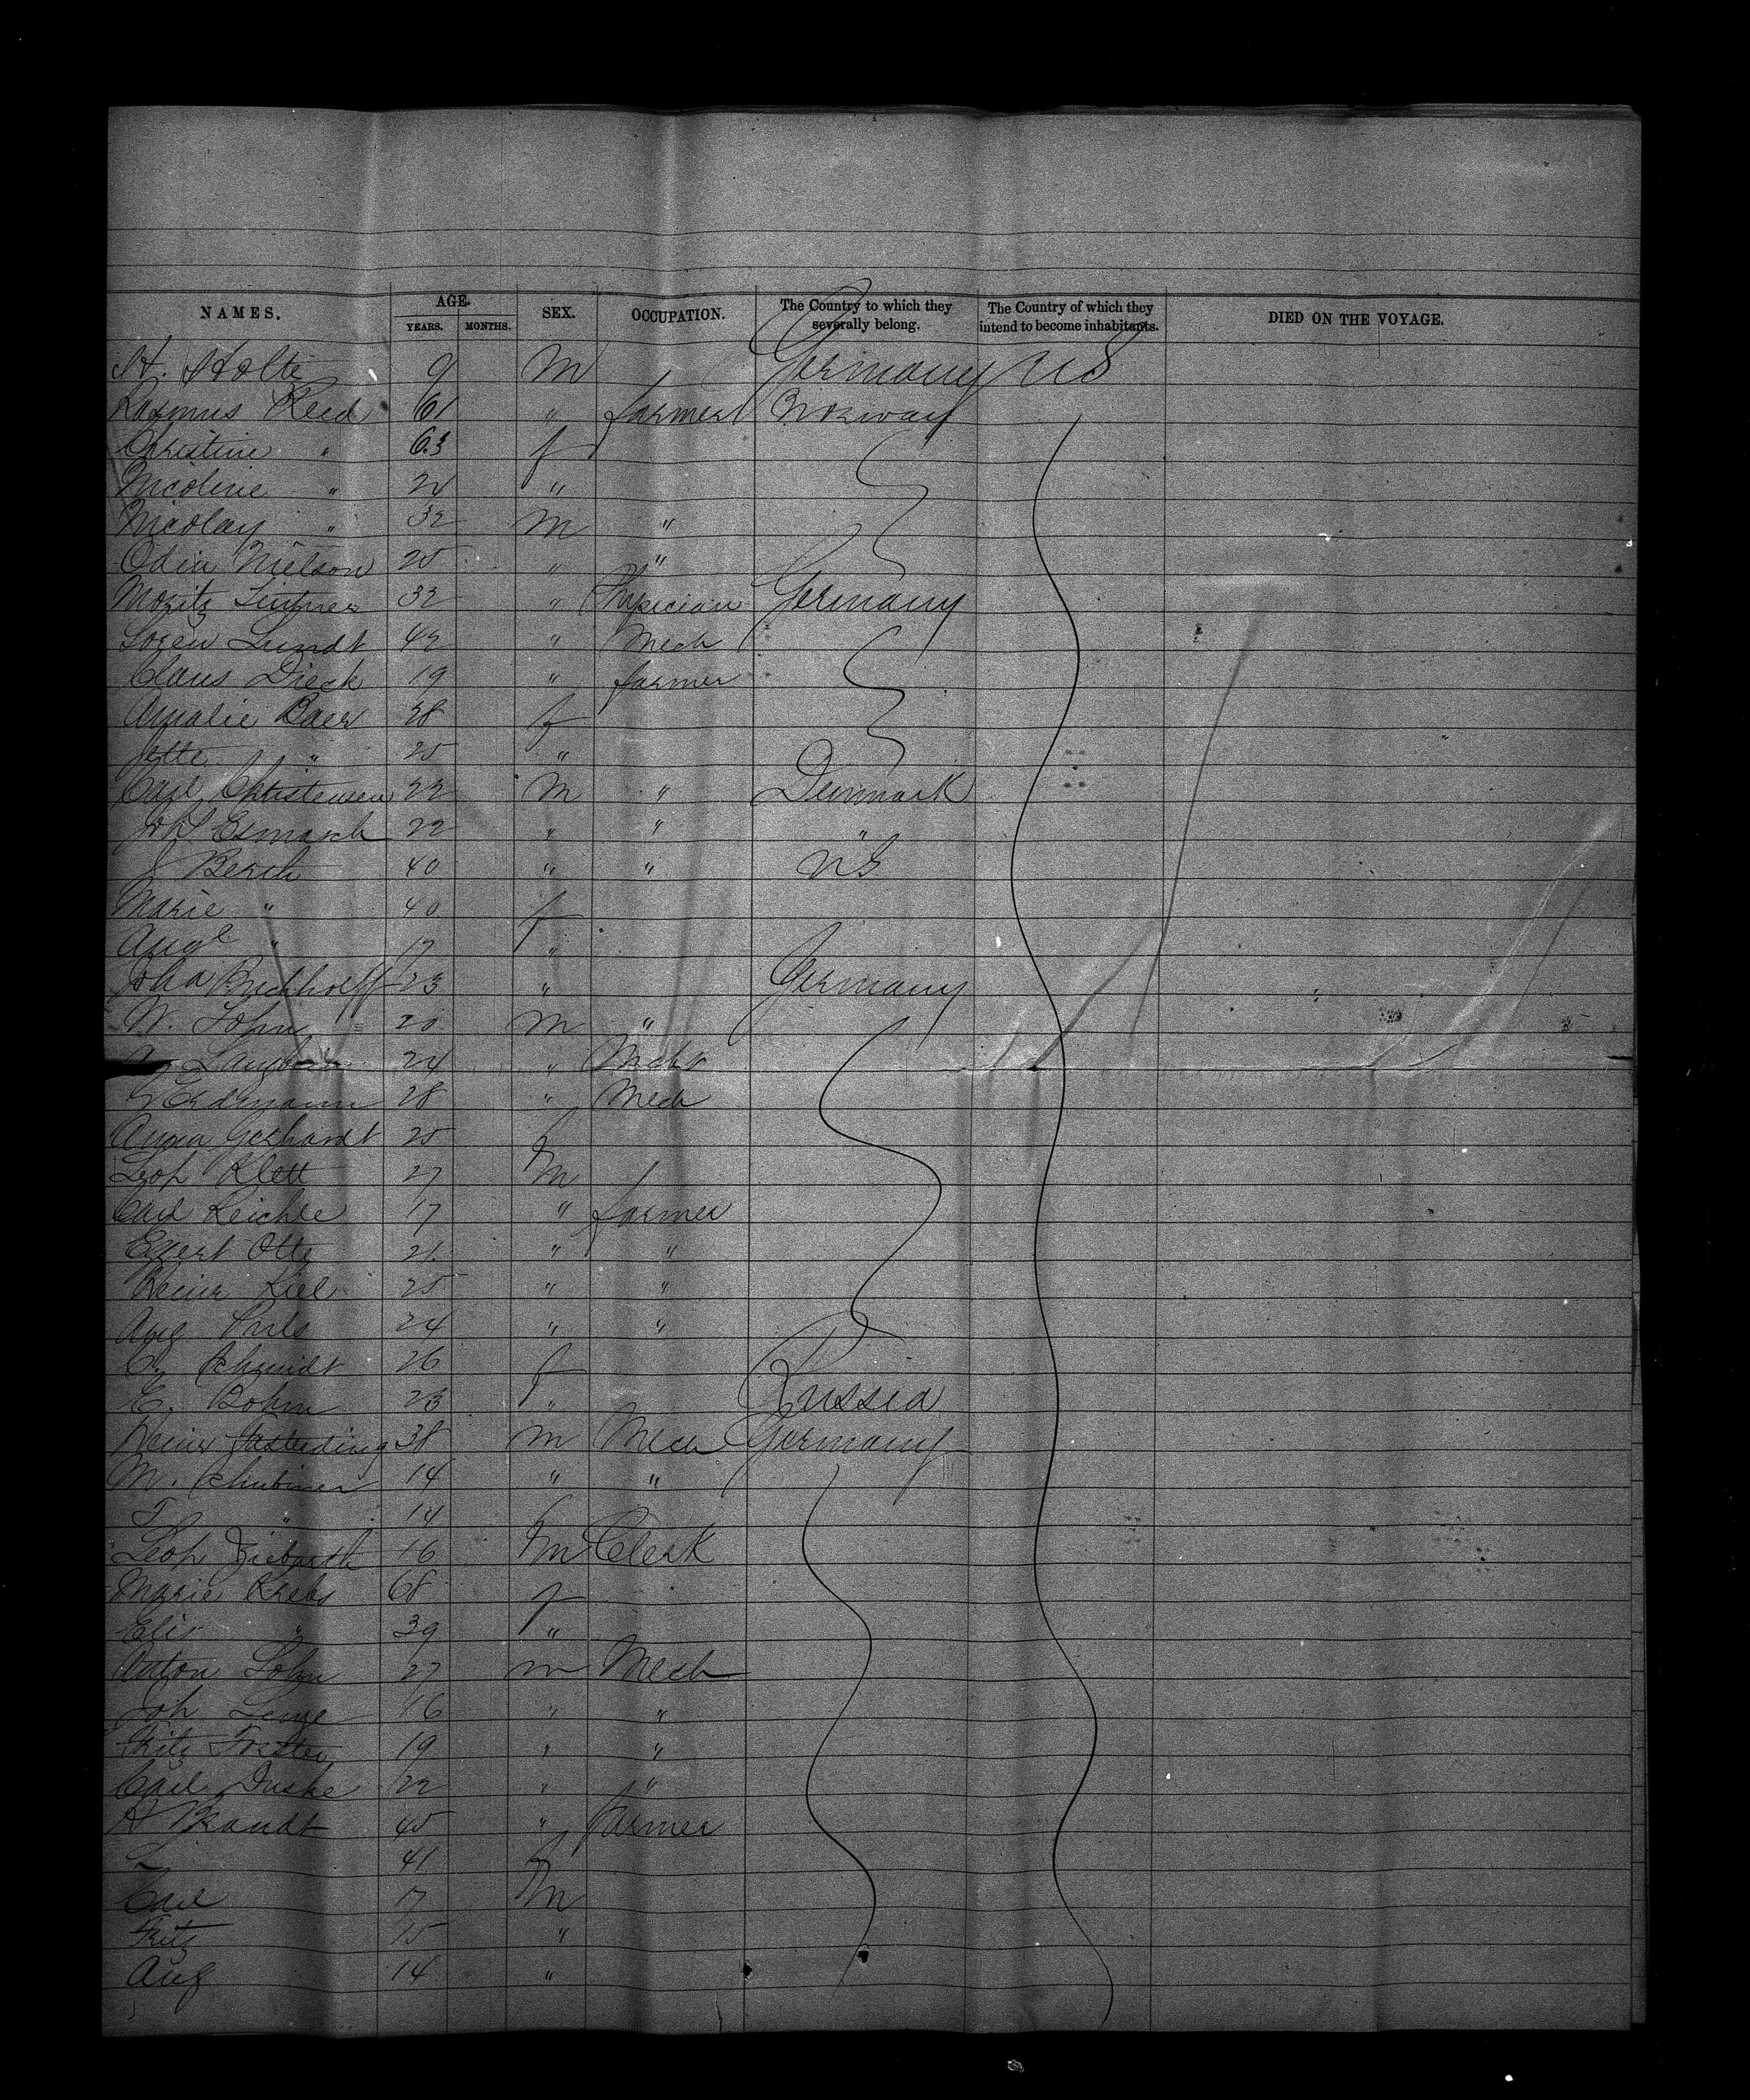 NAMES. AGE. YEARS. MONTHS. SEX. OCCUPATION. The Country to which they severally belong. The Country of which they intend to become inhabitants. DIED ON THE VOYAGE.
H. Holte 9 M Germany US
Rasmus Reed 61 " farmer Norway
Christine " 63 f
Nicoline " 24 "
Nicolay " 32 M "
Odin Nielson 25 " "
Moritz 32 " Physician Germany
Soren Lundt 42 " Mech
Claus Dieck 19 " farmer
Amalie Baer 28 f
Jette " 25 "
Carl Christensen 22 M " Denmark
Joh Esmarch 22 " " "
J Berch 40 " " US
Marie " 40 f
Aug " 17 "
Buchholtz 23 " Germany
W. John 20 M "
24 "
Erdmann 28 " Mech
Anna Gerhardt 25 f
Leop Klett 27 M
Carl Reichle 17 " farmer
Egert Otte 21 " "
Heinr Kiel 25 " "
Aug Puls 24 " "
C. Schmidt 26 f
E. Bohm 23 " Russia
Heinr Fasterding 38 M Mech Germany
M. 14 " "
" 14 f
Leop Ziebarth 16 M Clerk
Marie Krebs 68 f
Elis " 39 "
Anton John 27 m Mech
Joh 16 " "
Fritz Forster 19 " "
Carl 22 " "
H Brandt 45 " Farmer
L 41 f
Carl 17 M
Fritz 15 "
Aug 14 "